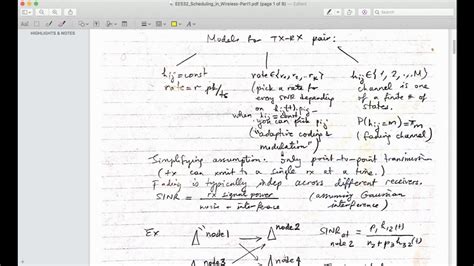 EE532_Scheduling_in_Wireless-Part1.pdf (page 1 of 8)
HIGHLIGHTS & NOTES
Models for TX-RX pair:
hij = const
rate = r pkt/ts
rate ∈ {r1, r2, .. rk}
(pick a rate for
every SNR depending
on hij(t), pij
when hij = const,
you can pick pij
"adaptive coding &
modulation")
hij ∈ {1, 2, .., M}
channel is one
of a finite # of
states.
P(hij = m) = πm
(fading channel)
Simplifying assumption: only point-to-point transmission
(tx can xmit to a single rx at a time.)
Fading is typically indep across different receivers.
SINR = rx signal power / noise + interference (assuming Gaussian interference)
Ex
node1
node2
SINR at node 2 = p1 h12(t) / n2 + p3 h32(t)
node4